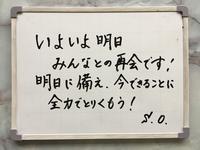 いよいよ明日
みんなとの再会です!
明日に備え、今できることに
全力でとりくもう!
S.O.